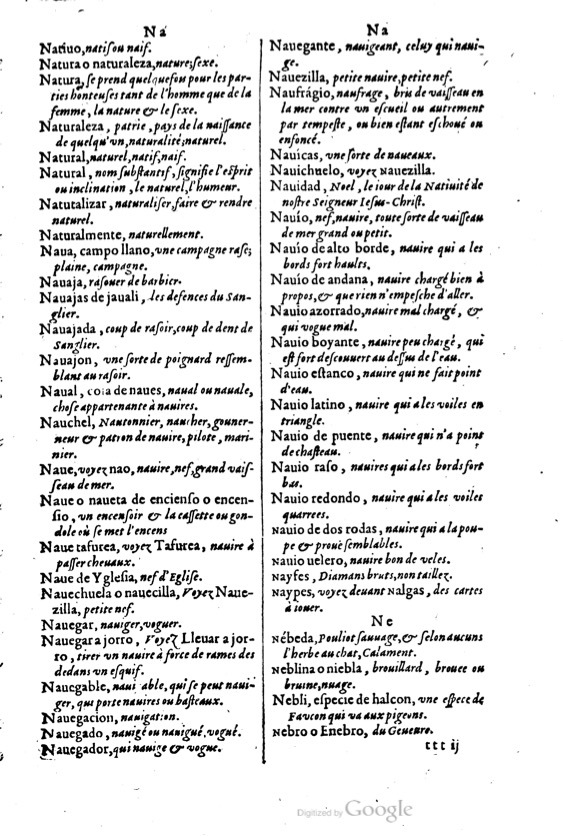 Na
Natiuo, natif ou naif.
Natura o naturaleza, nature, sexe.
Natura, se prend quelquefou pour les par-
ties honteuses tant de l'homme que de la
femme, la nature & le sexe.
Naturaleza, patrie, pays de la naissance
de quelqu'vn, naturalité, naturel.
Natural, naturel, natif, naif.
Natural, nom substantif, signifie l'esprit
ou inclination, le naturel, l'humeur.
Natutalizar, naturaliser, faire & rendre
naturel.
Naturalmente, naturellement.
Naua, campo llano, vne campagne rase,
plaine, campagne.
Nauaja, rasouer de barbier.
Nauajas de jauali, les defences du San-
glier.
Nauajada, coup de rasoir, coup de dent de
Sanglier.
Nauajon, vne sorte de poignard ressem-
blant au rasoir.
Naual, cosa de naues, naual ou nauale,
chose appartenante à nauires.
Nauchel, Nautonnier, naucher, gouuer-
neur & patron de nauire, pilote, mari-
nier.
Naue, voyez nao, nauire, nef, grand vais-
seau de mer.
Naue o naueta de encienso o encen-
sio, vn encensoir & la cassette ou gon-
dole où se met l'encens
Naue tafurea, voyez Tafurea, nauire à
passer cheuaux.
Naue de Yglesia, nef d'Eglise.
Nauechuela o nauecilla, Voyez Naue-
zilla, petite nef.
Nauegar, nauiger, voguer.
Nauegar a jorro, Voyez Lleuar a jor-
ro, tirer vn nauire à force de rames des
dedans vn esquif.
Nauegable, naui able, qui se peut naui-
ger, qui porte nauires ou basteaux.
Nauegacion, nauigation.
Nauegado, nauigé ou nauigué, vogué.
Nauegador, qui nauige & vogue.
Na
Nauegante, nauigeant, celuy qui naui-
ge.
Nauezilla, petite nauire, petite nef.
Naufrágio, naufrage, bris de vaisseau en
la mer contre vn escueil ou autrement
par tempeste, ou bien estant eschoué ou
enfoncé.
Nauicas, vne sorte de naueaux.
Nauichuelo, voyez Nauezilla.
Nauidad, Noel, le iour de la Natiuité de
nostre Seigneur Iesus-Christ.
Nauío, nef, nauire, toute sorte de vaisseau
de mer grand ou petit.
Nauío de alto borde, nauire qui a les
bords fort haults.
Nauío de andana, nauire chargé bien à
propos, & que rien n'empesche d'aller.
Nauio azorrado, nauire mal chargé, &
qui vogue mal.
Nauio boyante, nauire peu chargé, qui
est fort descouuert au dessus de l'eau.
Nauio estanco, nauire qui ne fait point
d'eau.
Nauio latino, nauire qui a les voiles en
triangle.
Nauio de puente, nauire qui n'a point
de chasteau.
Nauio raso, nauires qui a les bords fort
bas.
Nauio redondo, nauire qui a les voiles
quarrees.
Nauio de dos rodas, nauire qui a la pou-
pe & prouë semblables.
Nauio uelero, nauire bon de veles.
Nayfes, Diamans bruts, non taillez.
Naypes, voyez deuant Nalgas, des cartes
à iouer.
Ne
Nébeda, Pouliot sauuage, & selon aucuns
l'herbe au chat, Calament.
Neblina o niebla, brouillard, brouee ou
bruine, nuage.
Nebli, especie de halcon, vne espece de
Faucon qui va aux pigeons.
Nebro o Enebro, du Geneuro.
ttt ij
Digitized by Google